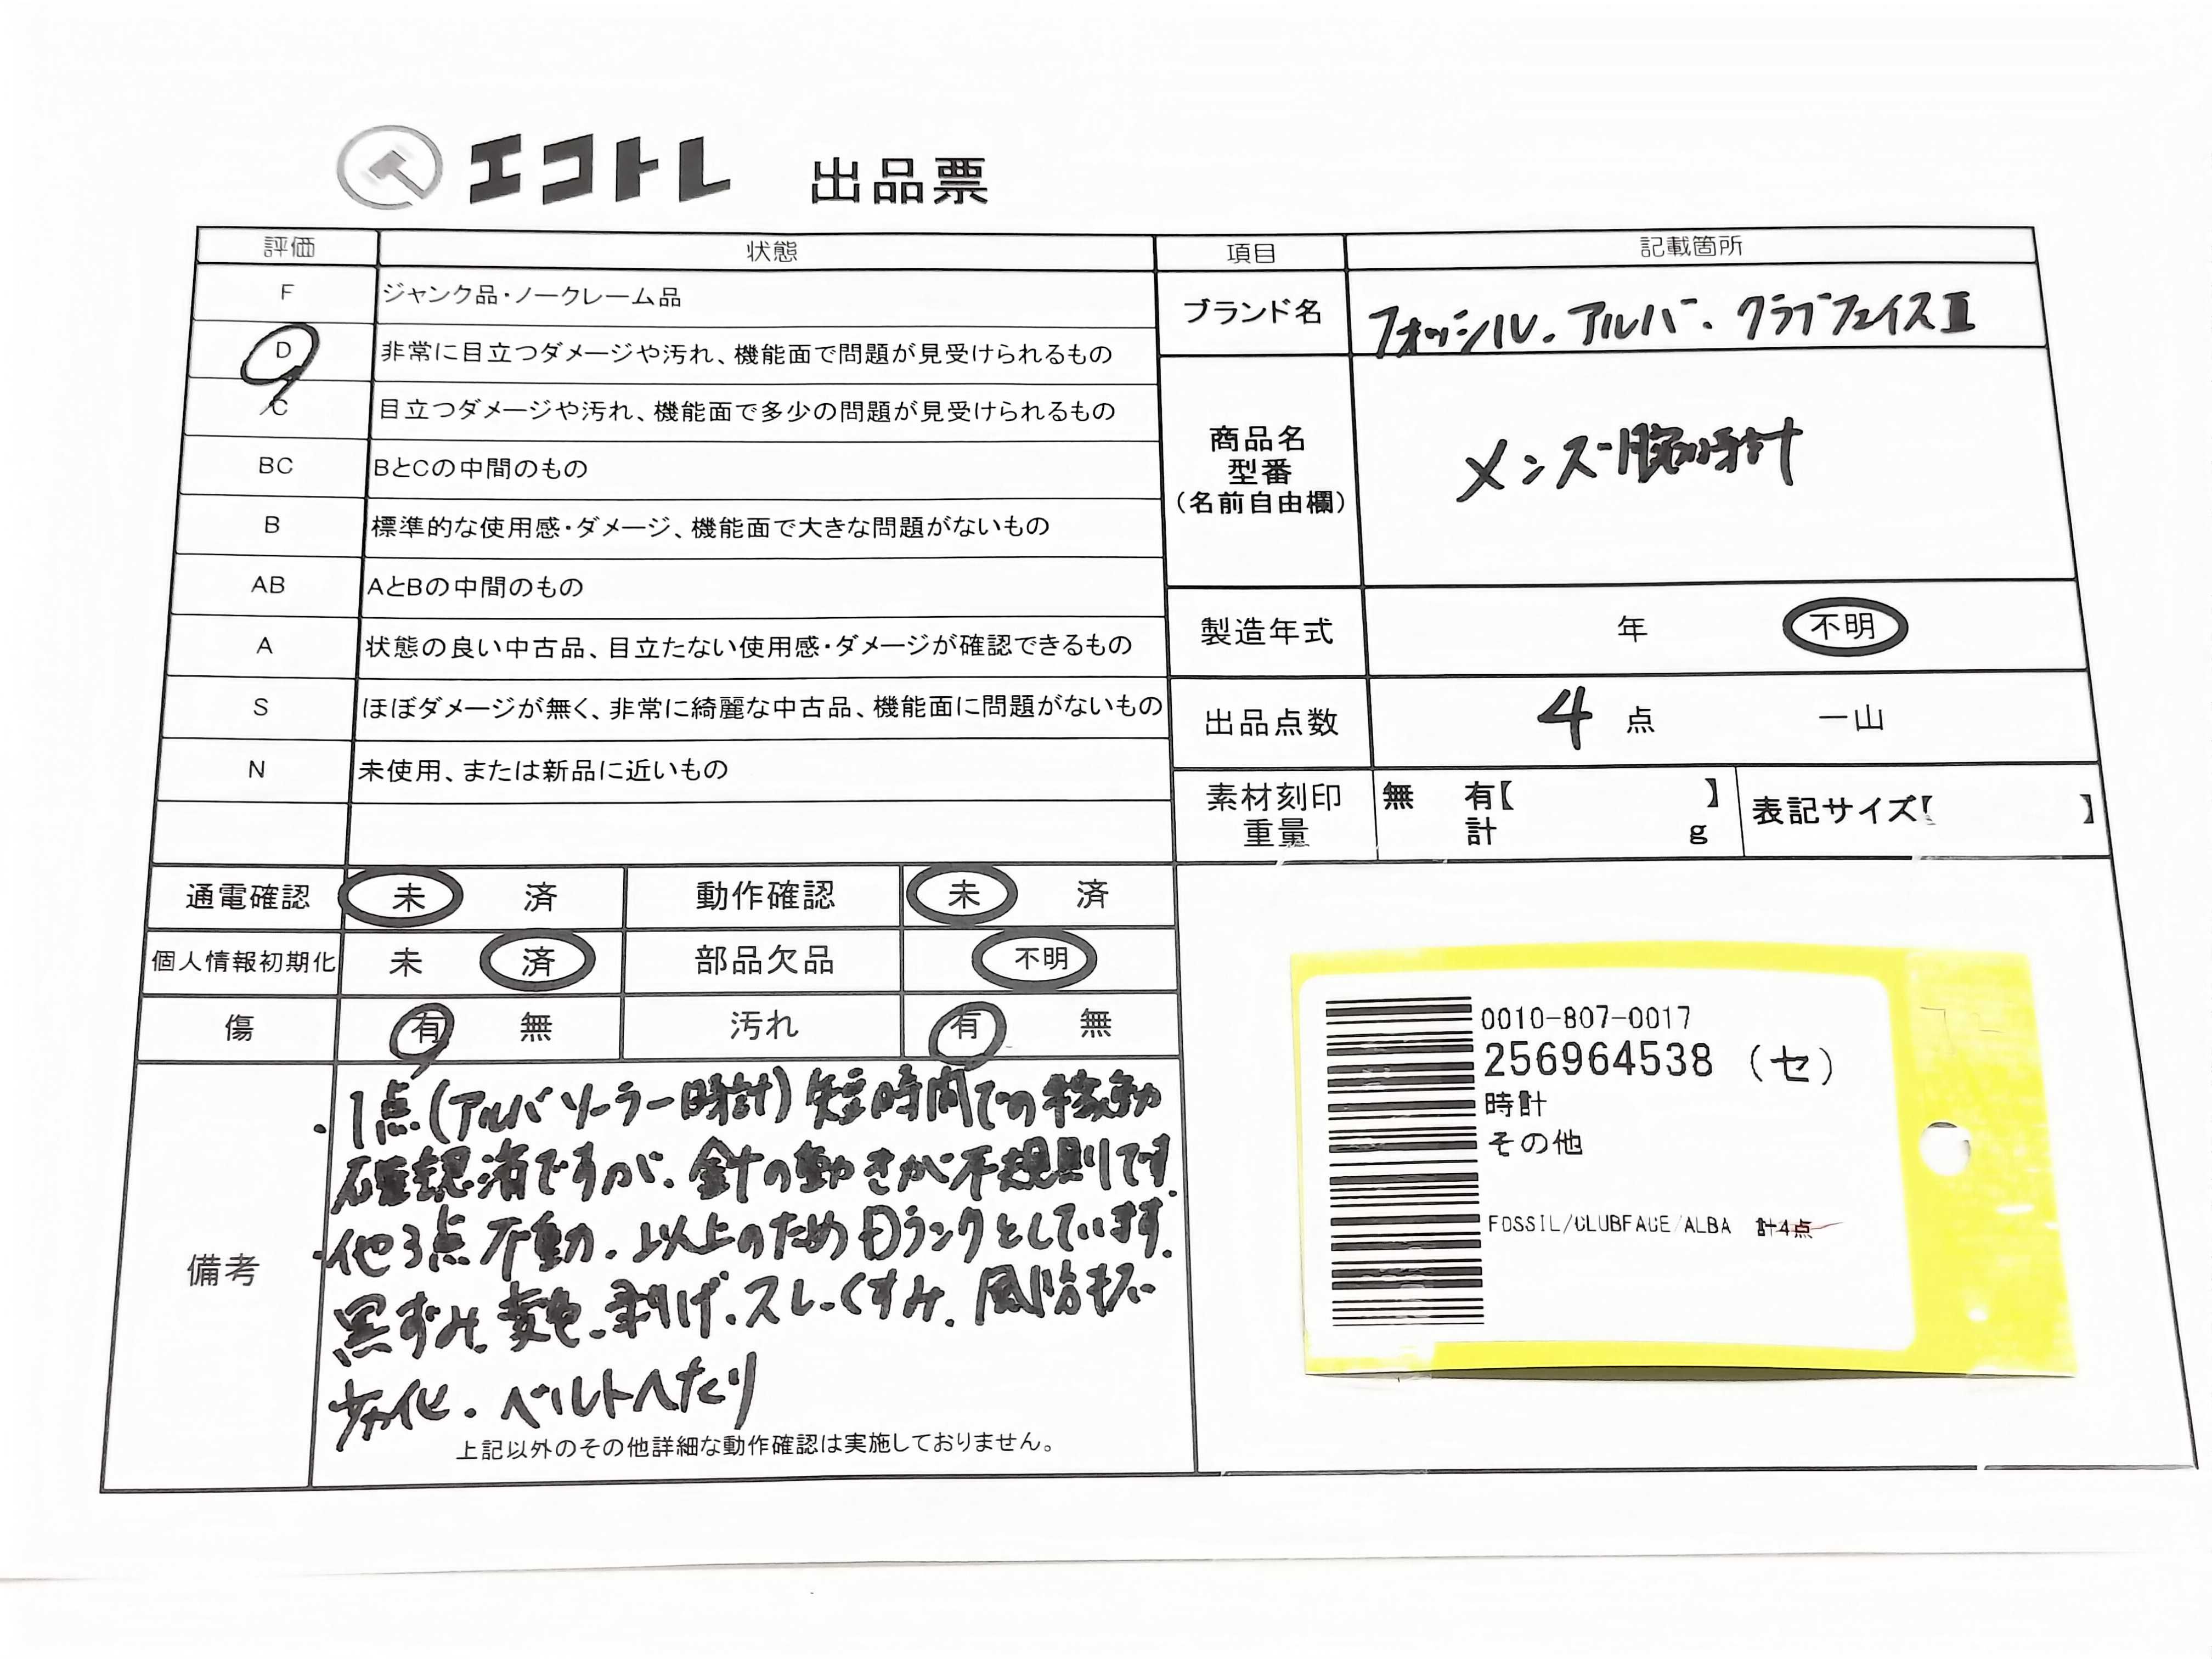 エコトレ 出品票
評価 状態
F ジャンク品・ノークレーム品
D 非常に目立つダメージや汚れ、機能面で問題が見受けられるもの
C 目立つダメージや汚れ、機能面で多少の問題が見受けられるもの
BC BとCの中間のもの
B 標準的な使用感・ダメージ、機能面で大きな問題がないもの
AB AとBの中間のもの
A 状態の良い中古品、目立たない使用感・ダメージが確認できるもの
S ほぼダメージが無く、非常に綺麗な中古品、機能面に問題がないもの
N 未使用、または新品に近いもの
項目 記載箇所
ブランド名 フォッシル. アルバ. クラブフェイスⅡ
商品名
型番
(名前自由欄)
メンズ腕時計
製造年式 年 不明
出品点数 4 点 一山
素材刻印 無 有【 】
重量 計 g
表記サイズ【 】
通電確認 未 済 動作確認 未 済
個人情報初期化 未 済 部品欠品 不明
傷 有 無 汚れ 有 無
備考
・1点(アルバソーラー時計)短時間での稼動
確認済ですが、針の動きが不規則です.
・他3点不動. 以上のためDランクとしています.
黒ずみ. 変色. 剥げ. スレ. くすみ. 風防キズ
劣化. ベルトへたり
上記以外のその他詳細な動作確認は実施しておりません。
0010-807-0017
256964538 (セ)
時計
その他
FOSSIL/CLUBFACE/ALBA 計4点